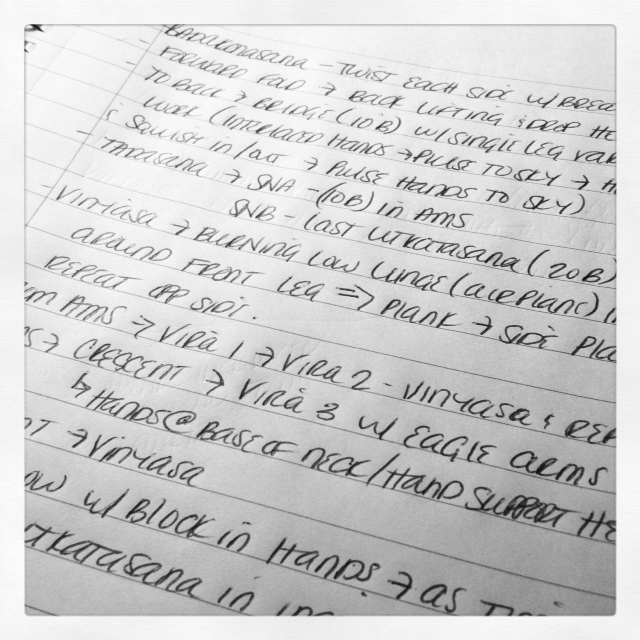 - BADDHAKONASANA - TWIST EACH SIDE W/BREA
- FORWARD FOLD → BACK LIFTING & DROP HE
TO BACK → BRIDGE (10B) W/SINGLE LEG VAR
WORK (INTERLACED HANDS → PULSE TO SKY →
& SQUISH IN/OUT → PULSE HANDS TO SKY)
- TADASANA → SNA - (10B) IN AMS
SNB - LAST UTKATASANA (20B)
- VINYASA → BURNING LOW LUNGE (AIRPLANE)
AROUND FRONT LEG ⇒ PLANK → SIDE PLA
REPEAT OPP SIDE.
OM AMS → VIRA 1 → VIRA 2 - VINYASA & REP
S → CRESCENT → VIRA 3 W/ EAGLE ARMS
↳ HANDS @ BASE OF NECK/HAND SUPPORT HE
T → VINYASA
OW W/ BLOCK IN HANDS → AS
UTKATASANA IN